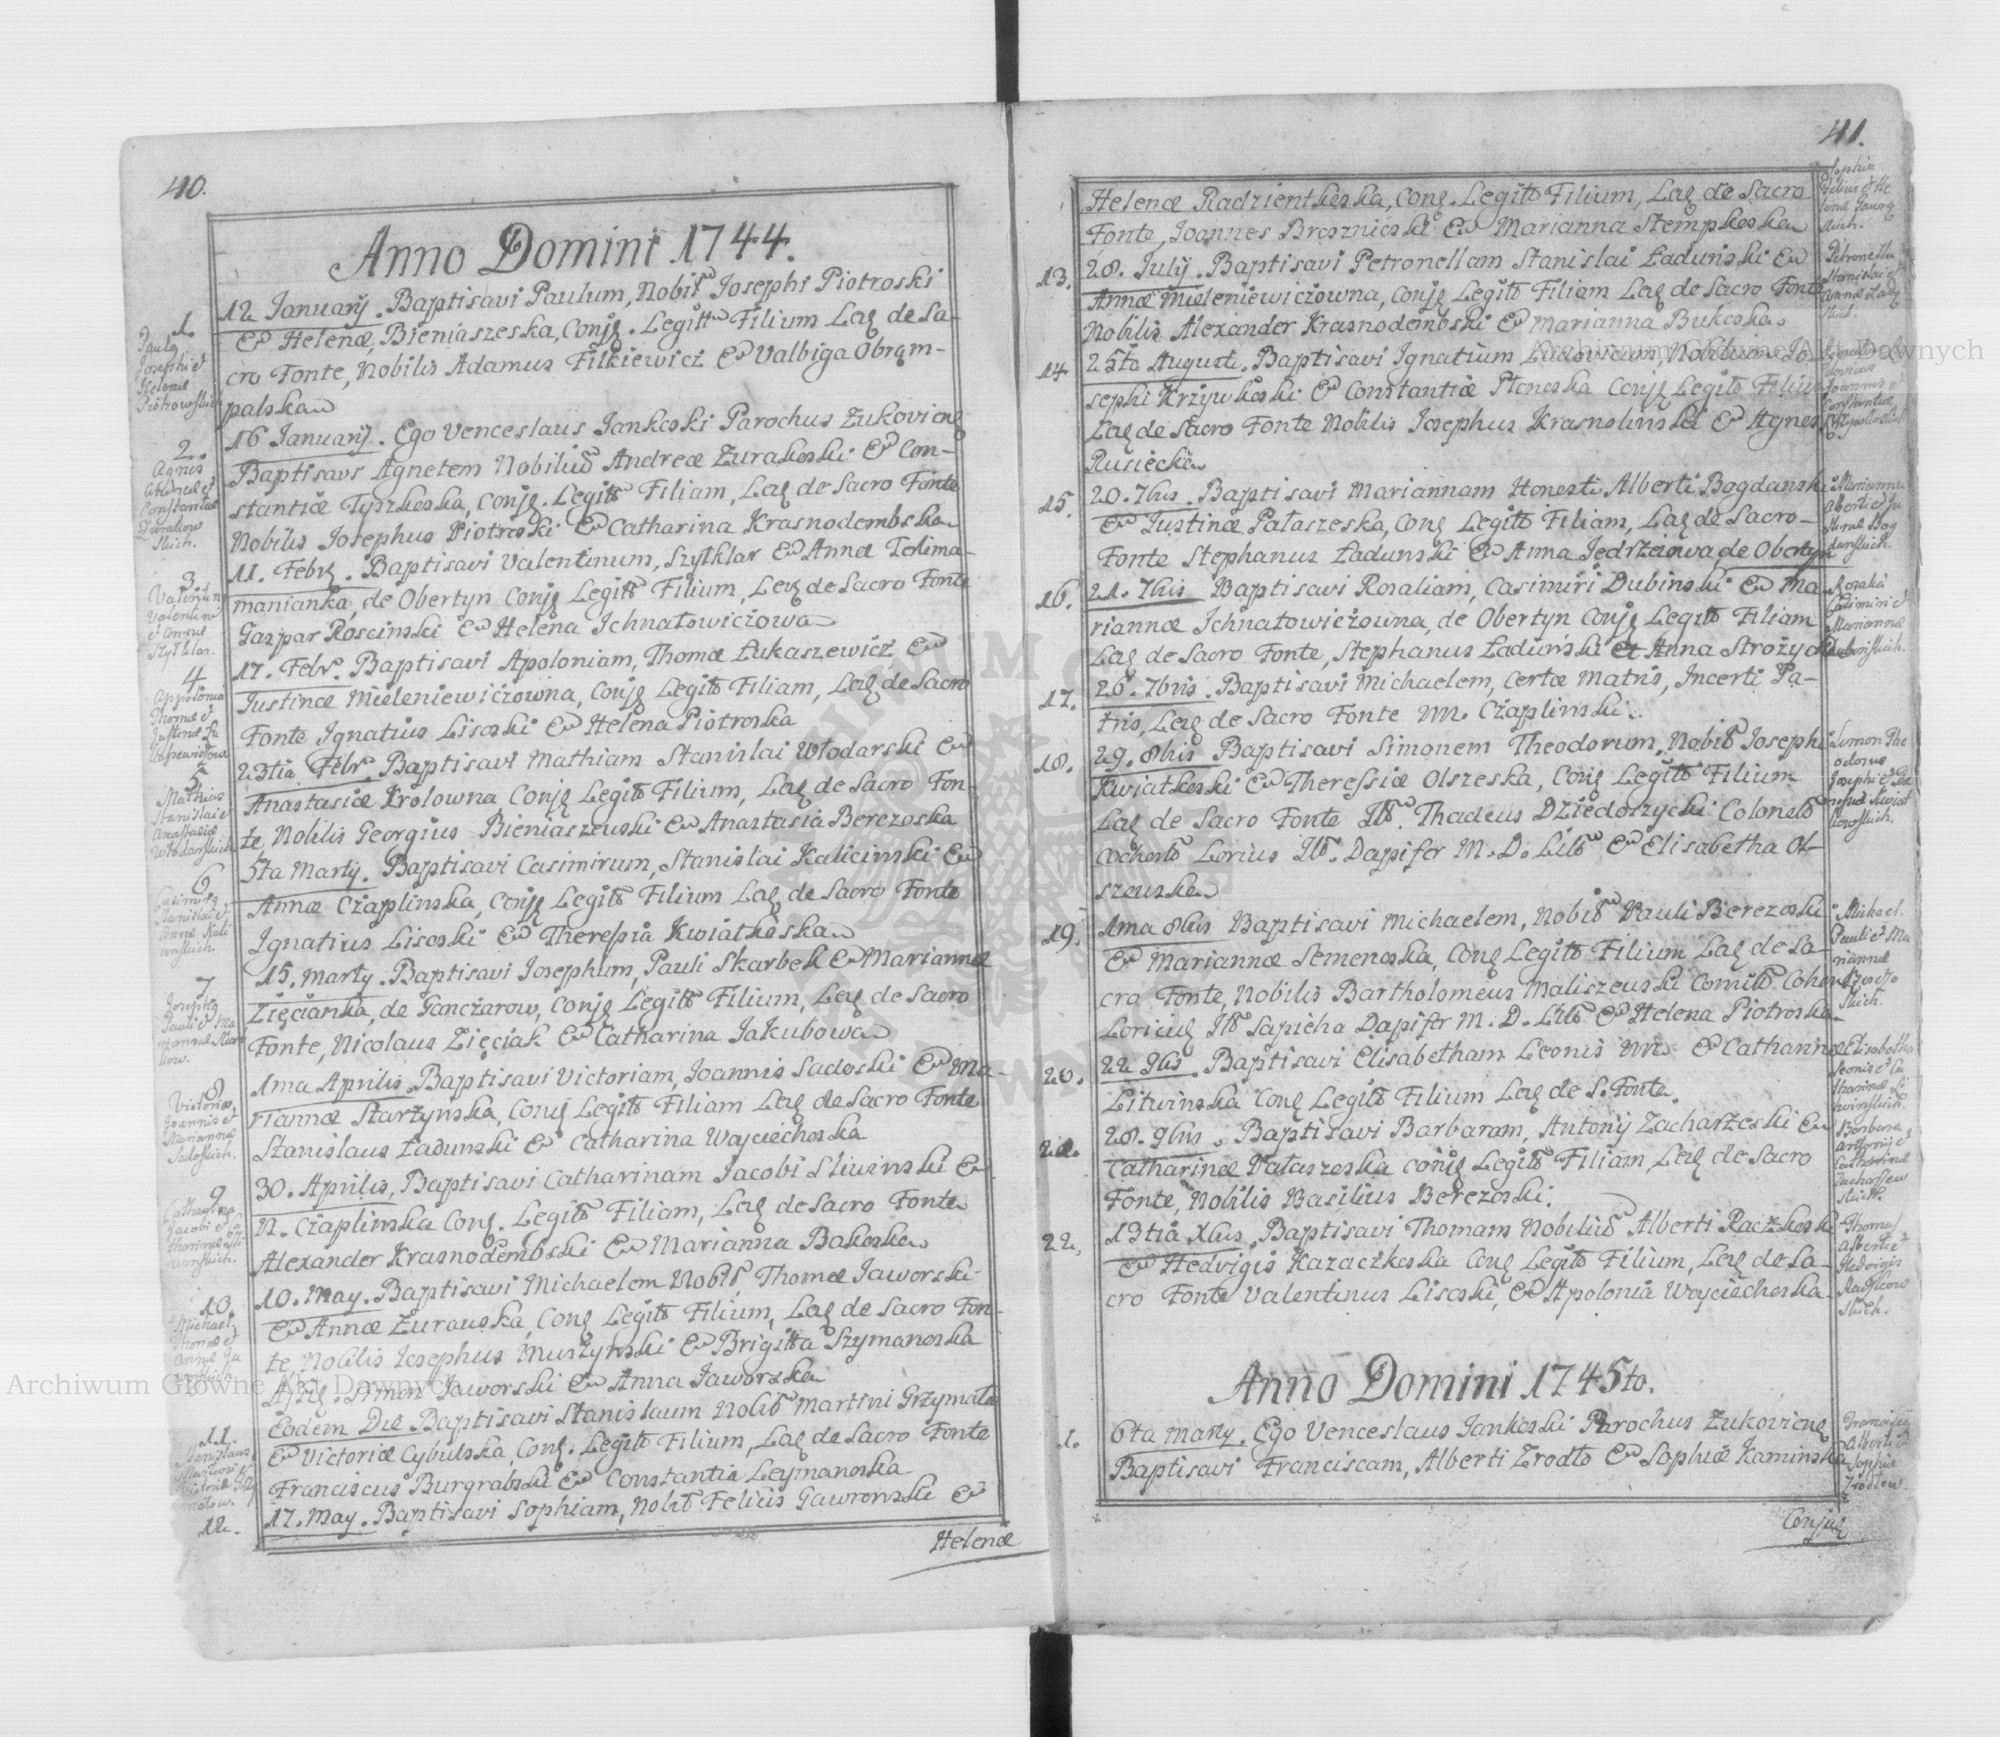 40.
Anno Domini 1744.
1.
Paulg
Josephi et
Helenæ
Piotrowskich
12 January. Baptisavi Paulum, Nobil Josephi Piotroski
& Helenæ, Bieniaszeska, Conjg. Legittm Filium Lag de Sa-
cro Fonte, Nobilis Adamus Filkiewicz & Valbiga Obrąm-
palska
2.
Agnes
Andreæ et
Constantiæ
Zurakow
skich.
16 January. Ego Venceslaus Jankoski Parochus Zukovieng
Baptisavi Agnetem Nobilium Andreæ Zurakoski & Con-
stantiæ Tyszkoska, Conjg. Legitt Filiam, Lag de Sacro Fonte
Nobilis Josephus Piotroski & Catharina Krasnodembska
3.
Valentin
Valentini
et Annæ
Szytklar.
11. Febr. Baptisavi Valentinum, Szytklar & Annæ Tedima-
manianka, de Obertyn Conjg Legitt Filium, Leg de Sacro Fonte
Gaspar Roscinski & Helena Jchnatowiczowa
4
Appolonia
Thomæ et
Justinæ Łu
17. Febr. Baptisavi Apoloniam, Thomæ Łukaszewicz &
Justinæ Mieleniewiczowna, Conjg Legitt Filiam, Lag de Sacro
Fonte Ignatius Lisoski & Helena Piotroska
5
Mathias
Stanislai et
Anastasiæ
Włodarskich
23tia Febr. Baptisavi Mathiam Stanislai Włodarski &
Anastasiæ Krolowna, Conjg Legitt Filium, Lag de Sacro Fon-
te, Nobilis Georgius Bieniaszewski & Anastasia Berezoska
6
Casimirg
Stanislai et
Annæ Kali
cinskich.
5ta Marty. Baptisavi Casimirum, Stanislai Kalicinski &
Annæ Czaplinska, Conjg Legitt Filium Lag de Sacro Fonte
Ignatius Lisoski & Theressia Kwiatkoska
7
Josephg
Pauli et Ma
riannæ Skar
bow.
15. Marty. Baptisavi Josephum, Pauli Skarbek & Mariannæ
Zięcianka, de Ganczarow, Conjg Legitt Filium, Lag de Sacro
Fonte, Nicolaus Zięciak & Catharina Jakubowa
8
Victoria
Joannis et
Mariannæ
Sadoskich.
1ma Aprilis Baptisavi Victoriam, Joannis Sadoski & Ma-
riannæ Starzynska, Conjg Legitt Filiam Lag de Sacro Fonte
Stanislaus Ładunski & Catharina Wojciechoska
9
Catharina
Jacobi et Ca
tharinæ Sli
winskich.
30. Aprilis, Baptisavi Catharinam Jacobi Sliwinski &
N. Czaplinska Cong. Legitt Filiam, Lag de Sacro Fonte
Alexander Krasnodembski & Marianna Bakoska
10.
Michael
Thomæ et
Annæ Ja
worskich
10. May. Baptisavi Michaelem Nobil, Thomæ Jaworski
& Annæ Zurawska, Cong Legitt Filium, Lag de Sacro Fon-
te, Nobilis Josephus Muszynski & Brigitta Szymanoska
Assig. Simon Jaworski & Anna Jaworska
11.
Stanislaus
Martini et
Victoriæ Grzy
matow.
Eodem Die Baptisavi Stanislaum Nobil Martini Grzymała
& Victoriæ Cybulska, Cong. Legitt Filium, Lag de Sacro Fonte
Franciscus Burgrabski & Constantia Leymanoska
12.
17. May. Baptisavi Sophiam, Nobil Felicis Gawronski &
Helenæ
41.
Sophia
Felicis et He
lenæ Gawrq
skich.
Helenæ Radzientkoska, Cong. Legitt Filium, Lag de Sacro
Fonte, Joannes Brosznioski & Marianna Stempkoska
13.
28. July. Baptisavi Petronellam Stanislai Ładunski &
Annæ Mieleniewiczowna, Conjg Legitt Filiam Lag de Sacro Fonte
Nobilis Alexander Krasnodembski & Marianna Bukoska
Petronella
Stanislai et
Annæ Ładu
skich.
14
25ta Auguste. Baptisavi Ignatium Ludovicum, Nobilium Jo-
sephi Krzywkoski & Constantiæ Płonoska Conjg Legitt Filium
Lag de Sacro Fonte Nobilis Josephus Krasnolinski & Agnes
Rusiecka
15.
20. 7bris. Baptisavi Mariannam Honesti Alberti Bogdanski
& Justinæ Pataszeska, Cong Legitt Filiam, Lag de Sacro
Fonte Stephanus Ładunski & Anna Jedrzeiowa de Obertyn
Marianna
Alberti et Ju
stinæ Bog
danskich.
16.
21. 7bris Baptisavi Rosaliam, Casimiri Dubinski & Ma-
riannæ Jchnatowiczowna, de Obertyn Conjg Legitt Filiam
Lag de Sacro Fonte, Stephanus Ładunski et Anna Strozycka
Rosalia
Casimiri et
Mariannæ
Dubinskich.
17.
26. 7bris. Baptisavi Michaelem, Certæ Matris, Incerti Pa-
tris, Lag de Sacro Fonte NN. Czaplinski.
18.
29. 8bris Baptisavi Simonem Theodorum, Nobil Josephi
Kwiatkoski & Theressiæ Olszeska, Conjg Legitt Filium
Lag de Sacro Fonte Ill. Thadeus Dziedoszycki Colonels
Cochorts Lorius Ill. Dapifer M. D. Litt & Elisabetha Ol-
szewska
Simon The
odorus
Josephi et The
ressiæ Kwiat
koskich.
19.
1ma 9bris Baptisavi Michaelem, Nobil Pauli Berezoski
& Mariannæ Semenoska, Cong Legitt Filium Lag de Sa-
cra Fonte, Nobilis Bartholomeus Maliszewski Comitt Cohor
Loricig Ill Sapieha Dapifer M. D. Litt & Helena Piotroska
Mikael.
Pauli et Ma
riannæ
Berezo
skich.
20.
22 9bris. Baptisavi Elisabetham Leonis NN. & Catharinæ
Litwinska Cong Legitt Filium Lag de S. Fonte.
Elisabetha
Leonis et Ca
tharinæ Li
twinskich.
21.
28. 9bris. Baptisavi Barbaram, Antony Zacharzeski &
Catharinæ Pataszeska conjg Legitt Filiam, Lag de Sacro
Fonte, Nobilis Basilius Berezoski.
Barbara
Antonij et
Catharinæ
Zacharzew
skich.
22.
13tia Xbris, Baptisavi Thomam Nobilium Alberti Raczkoski
& Hedvigis Kazaczkoska Cong Legitt Filium, Lag de Sa-
cro Fonte Valentinus Lisoski, & Apolonia Woyciechoska
Thomas
Alberti et
Hedvigis
Raczkow
skich.
Anno Domini 1745to.
1.
6ta Marty. Ego Venceslaus Jankoski Parochus Zukovieng
Baptisavi Franciscam, Alberti Zrodło & Sophiæ Kaminska
Francisca
Alberti et
Sophiæ
Zrodłow.
Conjug
Archiwum Główne Akt Dawnych
Archiwum Główne Akt Dawnych